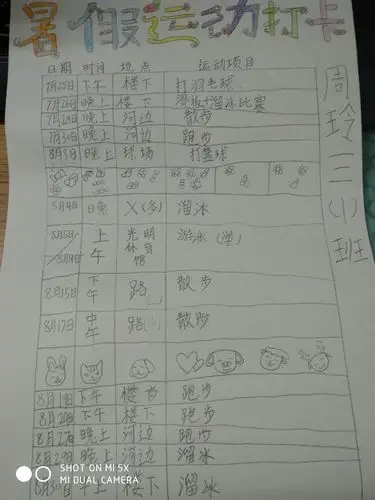 暑假运动打卡
周玲三(1)班
日期 时间 地点 运动项目
7月25日 下午 楼下 打羽毛球
7月26日 晚上 楼下 滑板+溜冰比赛
7月29日 晚上 河边 散步
7月30日 晚上 河边 跑步
8月3日 晚上 球场 打篮球
溜冰
8月5日/8月14日 上午 光明体育馆 游泳(学)
8月15日 下午 路 散步
8月17日 中午 路 散步
8月19日 下午 楼 跑步
下午 楼下 跑步
8月27日 晚上 河边 跑步
8月29日 晚上 河边 溜冰
8月30日 上 楼下 溜冰
SHOT ON MI 5X
MI DUAL CAMERA